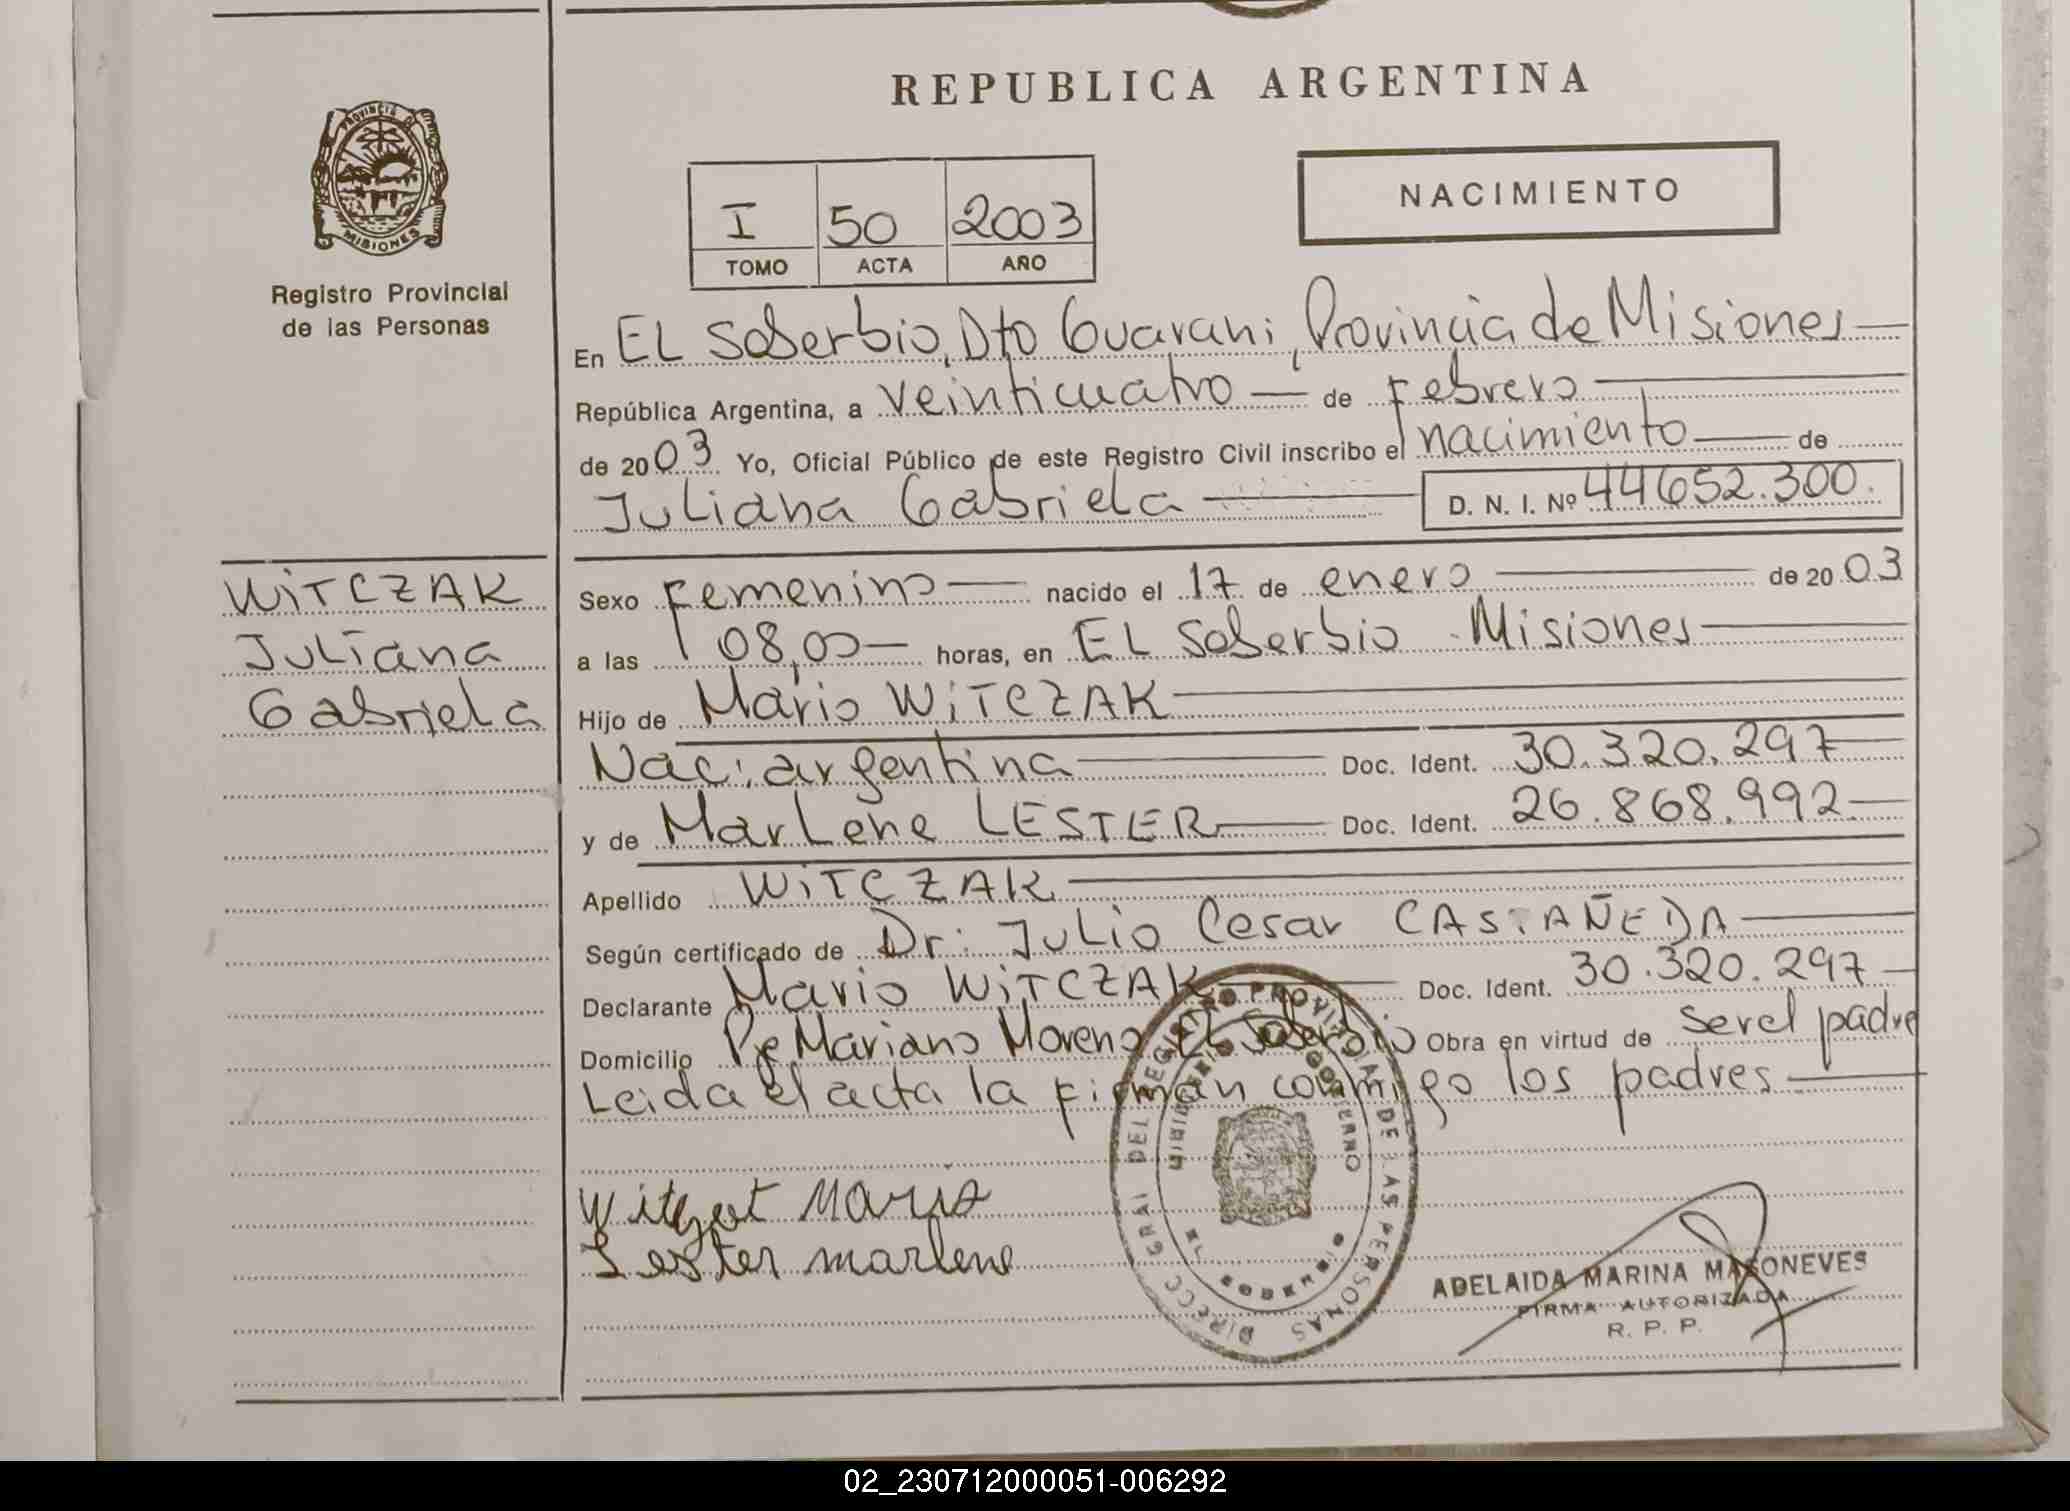 REPUBLICA ARGENTINA
PROVINCIA DE
MISIONES
Registro Provincial
de las Personas
NACIMIENTO
I 50 2003
TOMO ACTA AÑO
En EL Soberbio, Dto Guarani, Provincia de Misiones
República Argentina, a veinticuatro de Febrero
de 2003 Yo, Oficial Público de este Registro Civil inscribo el nacimiento de
Juliana Gabriela D. N. I. Nº 44652.300.
WiTCZAK
Juliana
Gabriela
Sexo Femenino nacido el 17 de enero de 20 03
a las 08,00 horas, en EL Soberbio Misiones
Hijo de Mario WiTCZAK
Nac: argentina Doc. Ident. 30.320.297
y de MarLene LESTER Doc. Ident. 26.868.992
Apellido WiTCZAK
Según certificado de Dr: Julio Cesar CASTAÑEDA
Declarante Mario WiTCZAK Doc. Ident. 30.320.297
Domicilio Pje Mariano Moreno El Soberbio Obra en virtud de ser el padre
Leida el acta la firman conmigo los padres
DIRECC GRAL DEL REGISTRO PROVINCIAL DE LAS PERSONAS
MINISTERIO DE GOBIERNO
EL SOBERBIO
Lester marlene
ADELAIDA MARINA MASONEVES
FIRMA AUTORIZADA
R. P. P.
02_230712000051-006292